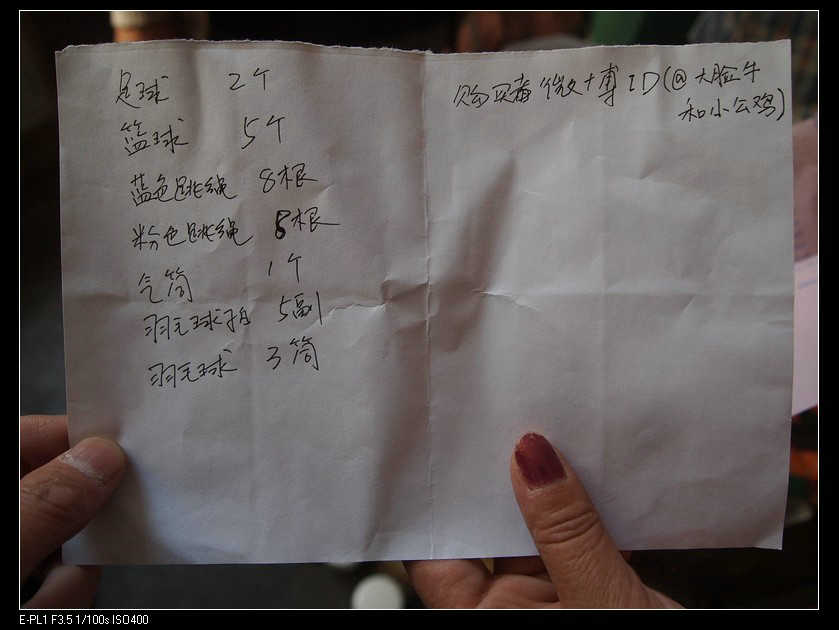 足球 2个
篮球 5个
蓝色跳绳 8根
粉色跳绳 8根
气筒 1个
羽毛球拍 5副
羽毛球 3筒
购买者微博ID(@大脸牛
和小公鸡)
E-PL1 F3.5 1/100s ISO400